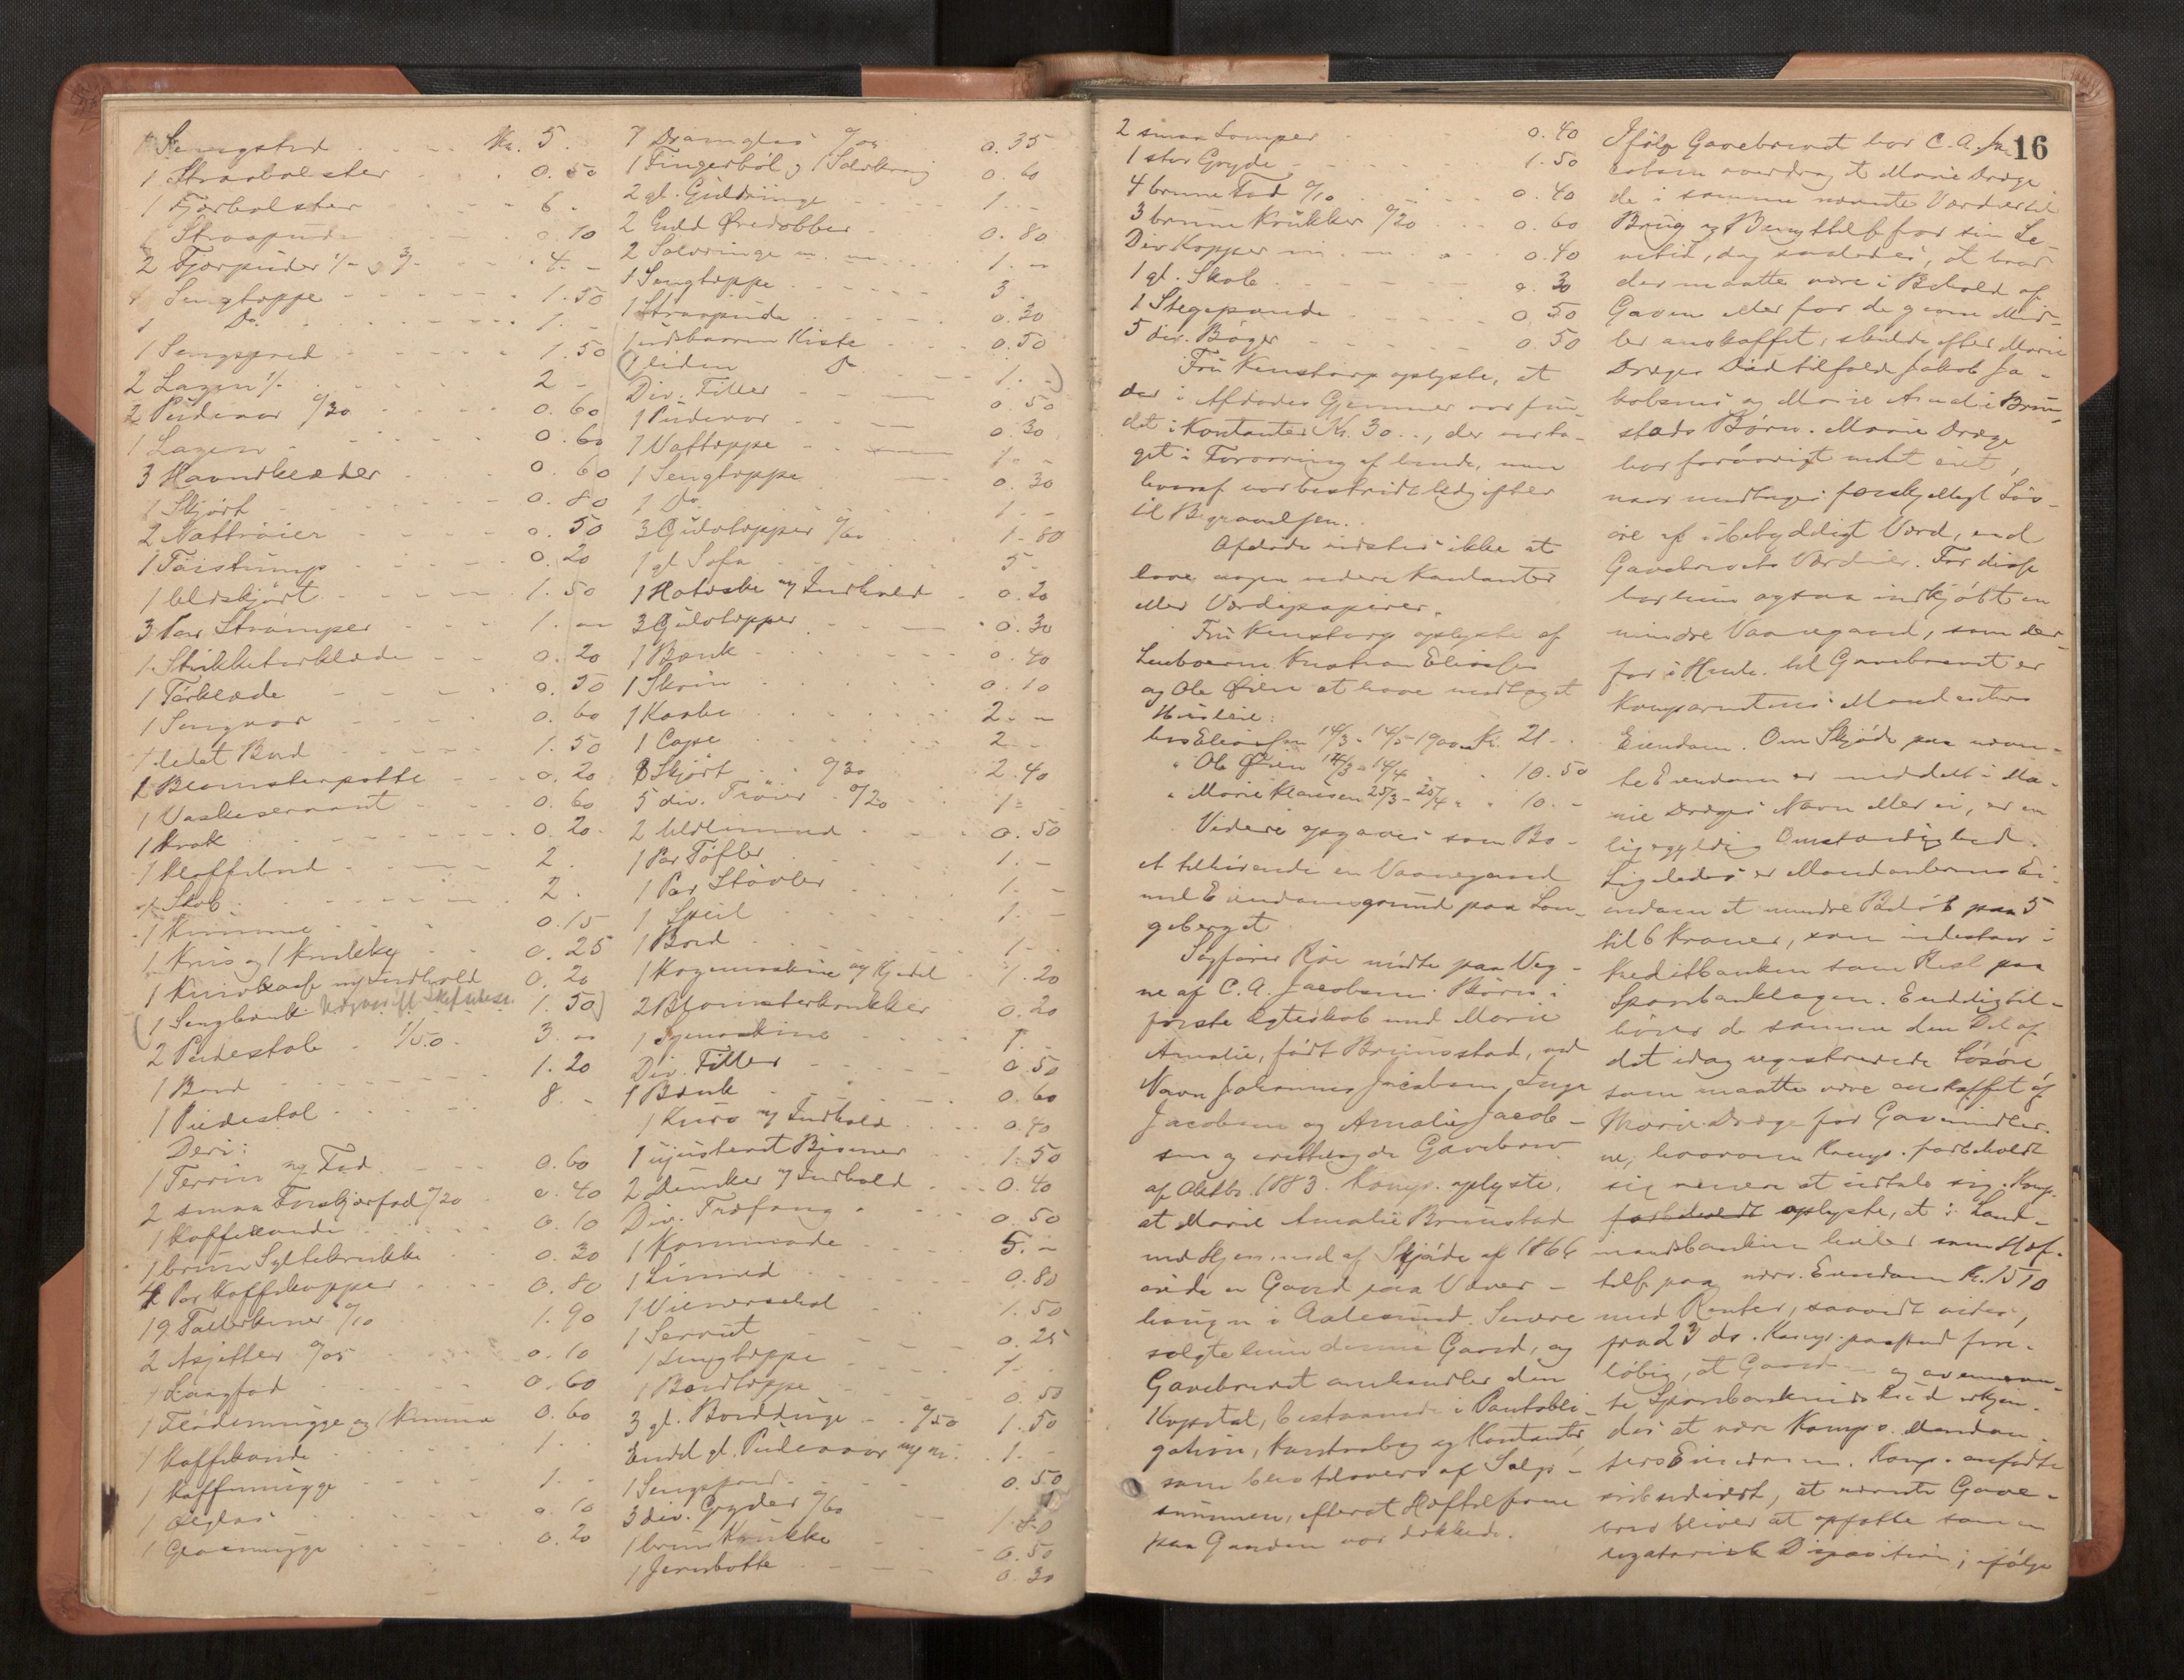 1 Sengsted Kr. 5.
1 Straabolster 0.50
1 Fjærbolster 6.
1 Straapude 0.10
2 Fjærpuder 1/- og 3/- 4.-
1 Sengtæppe 1.50
1 Do. 1.-
1 Sengspred 1.50
2 Lagen 1/- 2-
2 Pudevar 0/30 0.60
1 Lagen 0.60
3 Haandklæder 0.60
1 Skjört 0.80
2 Nattröier 0.50
1 Töistump 0.20
1 Uldskjört 1.50
3 Par Strömper 1.-
1 Strikketørklæde 0.20
1 Törklæde 0.50
1 Sengvar 0.60
1 ledet Bord 1.50
1 Blomsterpotte 0.20
1 Vaskeservant 0.60
1 Krak 0.20
1 Klaffebord 2.
1 Skab 2.
1 Kumme 0.15
1 Krus og 1 0.25
1 Kurv m/Indhold 0.20
(1 Sengbænk 1.50)
2 Pudestole 1/50 3.-
1 Bord 1.20
1 Piedestal 8.-
Deri:
1 Terrin m/ Fad 0.60
2 smaa Forskjærfad 0/20 0.40
1 Kaffekande 0.10
1 brun Syltekrukke 0.30
4 Par Kaffekopper 0.80
19 Tallerkener 0/10 1.90
2 Asjetter 0/05 0.10
1 Langfad 0.60
1 Flödemugge og 1 Kumme 0.60
1 Kaffekande 1.
1 Kaffemugge 1.-
1 Ölglas 0.10
1 Glasmugge 0.20
7 Dramglas 0/05 0.35
1 Fingerböl og 1 Sölvring 0.60
2 gl. Guldringe 1.-
2 Guld Øredobber 0.80
2 Sölvringe m. m. 1.-
1 Sengtæppe 3.
1 Straapude 0.30
1 udskaaren Kiste 0.50
(1 liden do 1.-)
Div. Filler 0.50
1 Pudevar 0.30
1 Vattæppe 1.-
1 Sengtæppe 0.30
1 Do. 1.-
3 Gulvtæpper 0/60 1.80
1 gl. Sofa 5-
1 Hatæske m/ Indhold 0.20
3 Gulvtæpper 0.30
1 Bænk 0.40
1 Skrin 0.10
1 Kaabe 2.-
1 Cape 2.-
8 Skjört 0/30 2.40
5 div. Tröier 0/20 1.-
2 Uldlinned 0.50
1 Par Töfler 1.-
1 Par Stövler 1.-
1 Speil 1.-
1 Bord 1.-
1 Kogemaskine m/ Kjedel 1.20
2 Blomsterkrukker 0.20
1 Symaskine 1.-
Div. Filler 0.50
1 Bænk 0.60
1 Kurv m/ Indhold 0.40
1 ujusteret Bismer 1.50
2 Dunker m/ Indhold 0.40
Div. Træfang 0.50
1 Kommode 5.-
1 Linned 0.80
1 Vienerschal 1.50
1 Serviet 0.25
1 Sengtæppe 1.
1 Bordtæppe 0.50
3 gl. Bordduge 0/50 1.50
Endel gl. Pudevar m. m. 1.-
1 Sengspred 0.50
3 div. Gryder 0/60 1.80
1 brun Krukke 0.50
1 Jernbötte 0.30
16
2 smaa Lamper 0.40
1 stor Gryde 1.50
4 brune Fad 0/10 0.40
3 brune Krukker 0/20 0.60
Div. Kopper m. m. 0.40
1 gl. Skab 0.30
1 Stegepande 0.50
5 div. Bøger 0.50
Fru Kenstorp oplyste, at
der i Afdödes Gjemmer var fun-
det i Kontanter Kr. 30.-, der var ta-
get i Forvaring af hende, men
hvoraf var bestridt Udgifter
til Begravelsen.
Afdöde vidstes ikke at
have nogen videre Kontanter
eller Værdipapirer.
Fru Kenstorp oplyste af
Leieboerne Kristian Eliassen
og Ole Øien at have modtaget
Husleie:
hos Eliassen 14/3 - 14/5 1900 Kr. 21-
" Ole Øien 14/3 - 14/4 " " 10.50
" Marie Klausen 25/3 - 25/4 " " 10.-
Videre opgaves som Bo-
et tilhörende en Vaanegaard
med Eiendomsgrund paa Lan-
geberget.
Sagförer Röe mödte paa Veg-
ne af C. A. Jacobsens Börn i
förste Ægteskab med Marie
Amalie, født Brunstad, ved
Navn Johannes Jacobsen, Inga
Jacobsen og Amalie Jacob-
sen og fremlagde Gavebrev
af Oktbr. 1883. Komp. oplyste,
at Marie Amalie Brunstad
med Hjemmel af Skjöde af 1866
eiede en Gaard paa
i Aalesund. Senere
solgte hun denne Gaard, og
Gavebrevet omhandler den
Kapital, bestaaende i Pantobli-
gation, og Kontanter,
som blev tilovers af Salgs-
summen, efterat Hæftelserne
paa Gaarden var dækkede.
Ifölge Gavebrevet har C. A. Ja-
cobsen overdraget Marie Dræge
de i samme nævnte Værdier til
Brug og Benyttelse for sin Le-
vetid, dog saaledes, at hvad
der maatte være i Behold af
Gaven eller for de gjorte Mid-
ler anskaffet, skulde efter Marie
Dræges Död tilfalde Jakob Ja-
kobsens og Marie Amalie Brun-
stads Börn. Marie Dræge
har forövrigt intet eiet,
naar undtages forskjelligt Lös-
öre af ubetydeligt Værd, end
Gavebrevets Værdier. For disse
har hun ogsaa indkjöbt en
mindre Vaanegaard, som der-
for i Henh. til Gavebrevet er
Komparentens Mandanters
Eiendom. Om Skjöde paa nævn-
te Eiendom er meddelt i Ma-
rie Dræges Navn eller ei, er en
ligegyldig Omstændighed.
Ligeledes er Mandanternes Ei-
endom et mindre Belöb paa 5
til 6 Kroner, som indestaar i
Kreditbanken som Rest paa
Sparebanklagen. Endelig til-
hörer de samme den Del af
det idag registrerede Lösöre
som maatte være anskaffet af
Marie Dræge for Gavemidler-
ne, hvorom Komp. forbeholdt
sig senere at udtale sig. Komp.
forbeholdt oplyste, at i Land-
mandsbanken hviler som Hæf-
telse paa nævn. Eiendom Kr. 1570
med Renter, saavidt vides,
fra 23 ds. Komp. paastod fore-
löbig, at Gaarden og ovennævn-
te Sparebankindskud erkjen-
des at være Komp.s Mandan-
ters Eiendom. Komp. anförte
endvidere, at nævnte Gave-
brev bliver at opfatte som en
legatarisk Disposition; ifölge